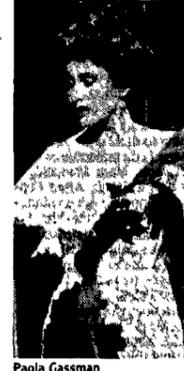 Paola Gassman